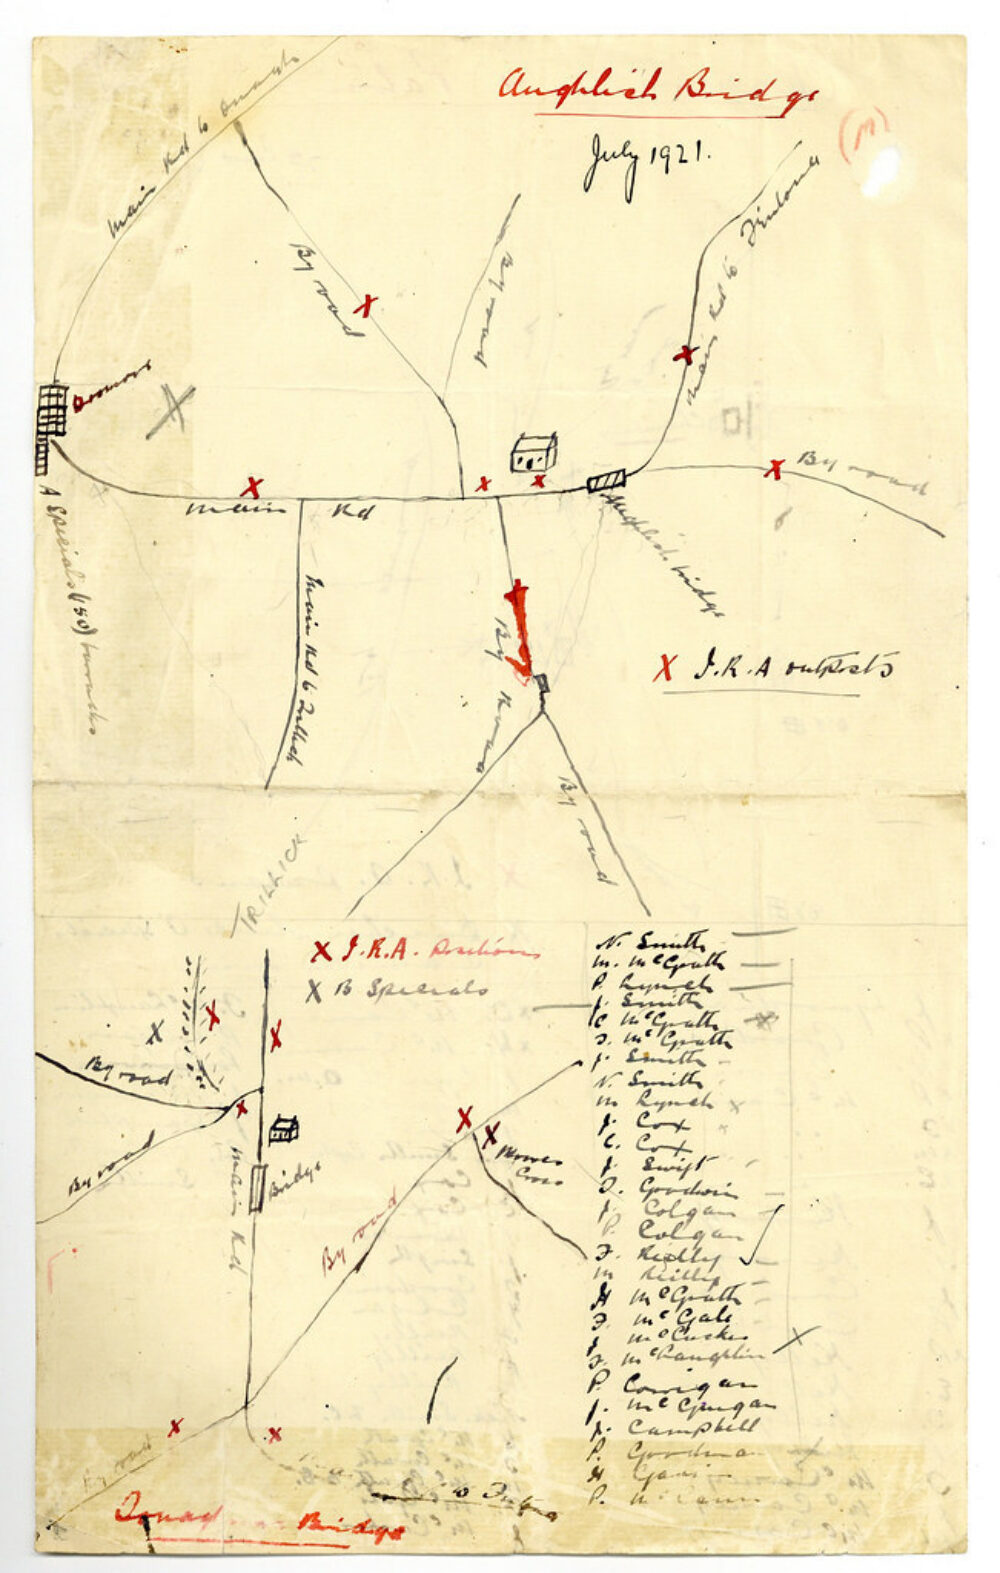 Aughlish Bridge
July 1921.
(M)
Main Rd to Omagh
By road
By road
Main Rd to Fintona
Dromore
By road
Main Rd
A Specials (50) barracks
Aughlish bridge
Main Rd to Trillick
By Road
X I.R.A outposts
By road
TRILLICK
X I.R.A. Positions
X B Specials
By road
By road
Main Rd
Bridge
By road
Cross
By road
to
Bridge
N. Smith
M. McGrath
P. Lynch
J. Smith
C McGrath
J. McGrath
J. Smith
N. Smith
M Lynch
J. Cox
C. Cox
J. Swift
J. Goodwin
J. Colgan
P. Colgan
F. Reilly
M Reilly
H McGrath
F. McGale
J McCusker
F. McLaughlin
P. Corrigan
J. McGuigan
J. Campbell
P. Goodman
H
P. McCann